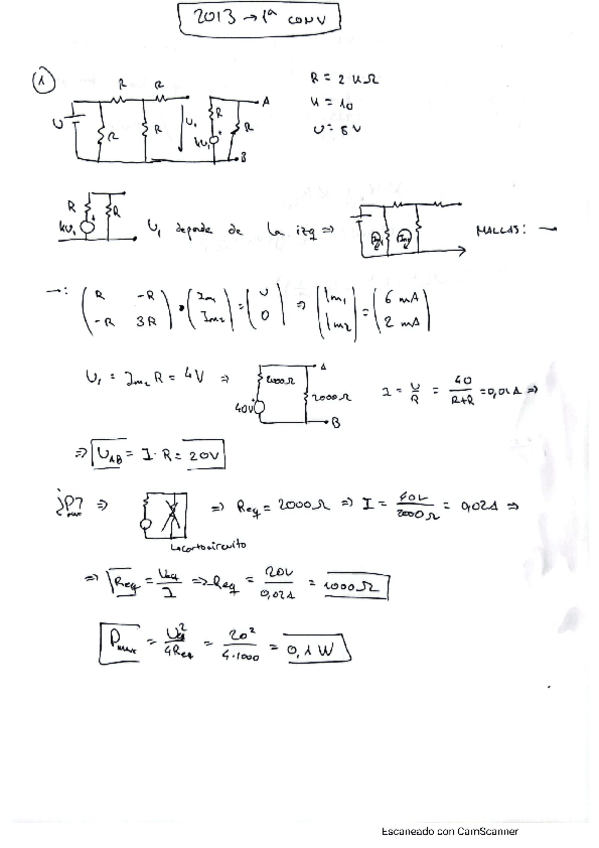 2013 → 1ª CONV
1
R R
R = 2 kΩ
A
U R R U₁ R kU₁ R
k = 10
U = 8 V
B
R kU₁ R U₁ depende de la izq ⇒ Im₁ Im₂ MALLAS: →
→: (R -R -R 3R) · (Im₁ Im₂) = (U 0) ⇒ (Im₁ Im₂) = (6 mA 2 mA)
U₁ = Im₂ R = 4V ⇒ 40V 2000Ω 2000Ω A B I = U/R = 40/R+R = 0,01A ⇒
⇒ U_AB = I · R = 20V
¿P_max? ⇒ ⇒ Req = 2000Ω ⇒ I = 40V/2000Ω = 0,02A ⇒
↳ cortocircuito
⇒ Req = Ueq/I ⇒ Req = 20V/0,02A = 1000Ω
P_max = U²/4Req = 20²/4·1000 = 0,1 W
Escaneado con CamScanner